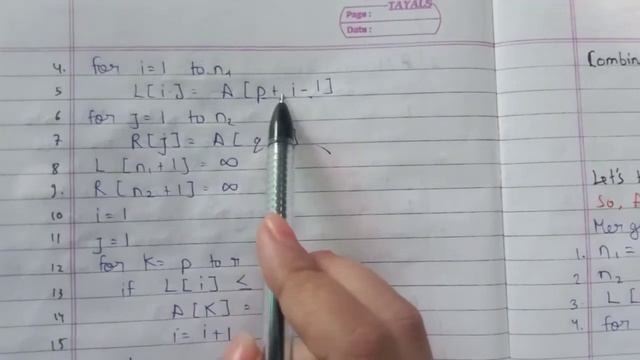 TAYALS
Page :
Date :
4. for i = 1 to n1
5 L[i] = A[p+i-1]
6 for j = 1 to n2
7 R[j] = A[q ]
8 L[n1+1] = ∞
9. R[n2+1] = ∞
10 i = 1
11 j = 1
12 for K = p to r
13 if L[i] ≤
14 A[K] =
15 i = i+1
Combin
Let's
so, f
Merg
1. n1 =
2 n2
3 L[
4. for